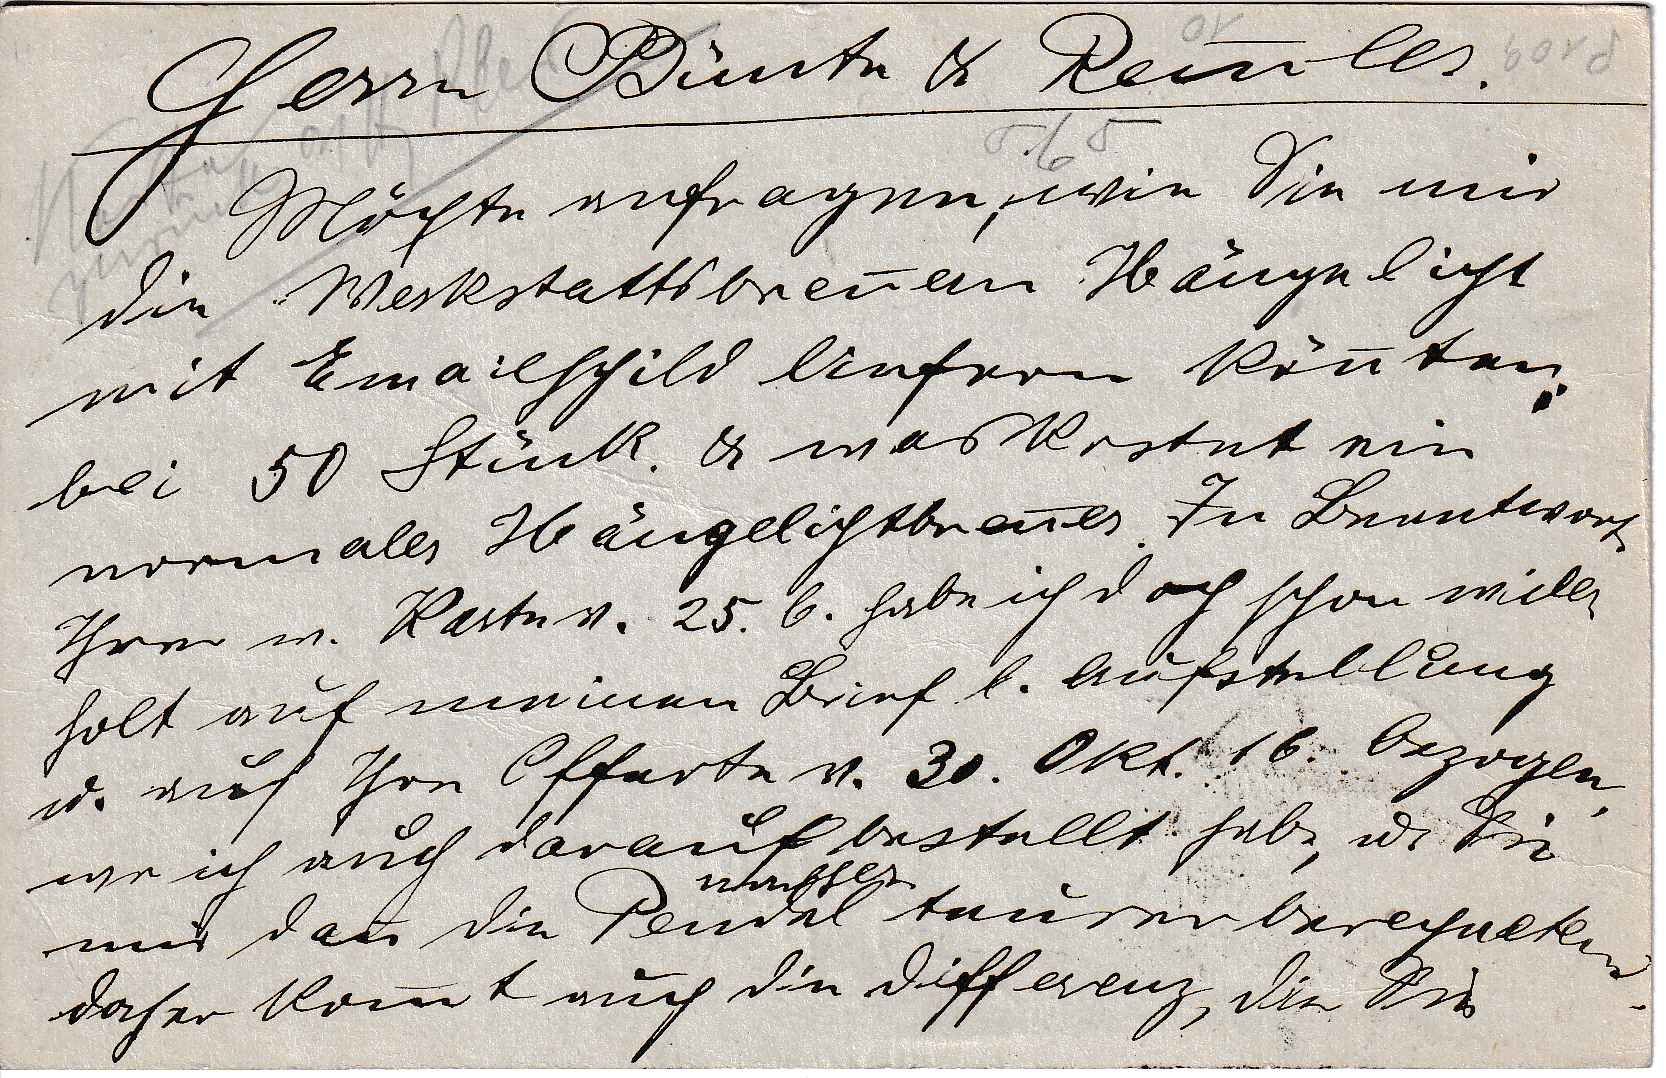 Herrn Bünte & Remmler.
Möchte anfragen, wie Sie mir
die Werkstattsbrenner Hängelicht
mit Emailschild liefern könnten,
bei 50 Stück. & was kostet ein
normaler Hängelichtbrenner. In Beantwort.
Ihrer w. Karte v. 25. 6. habe ich doch schon wieder
holt auf meinen Brief l. Aufstellung
u. auf Ihre Offerte v. 30. Okt. 16. bezogen,
wo ich auch darauf bestellt habe, wo Sie
mir dan die Pendel nachher teurer berechneten
daher kommt auch die Differenz, die Sie